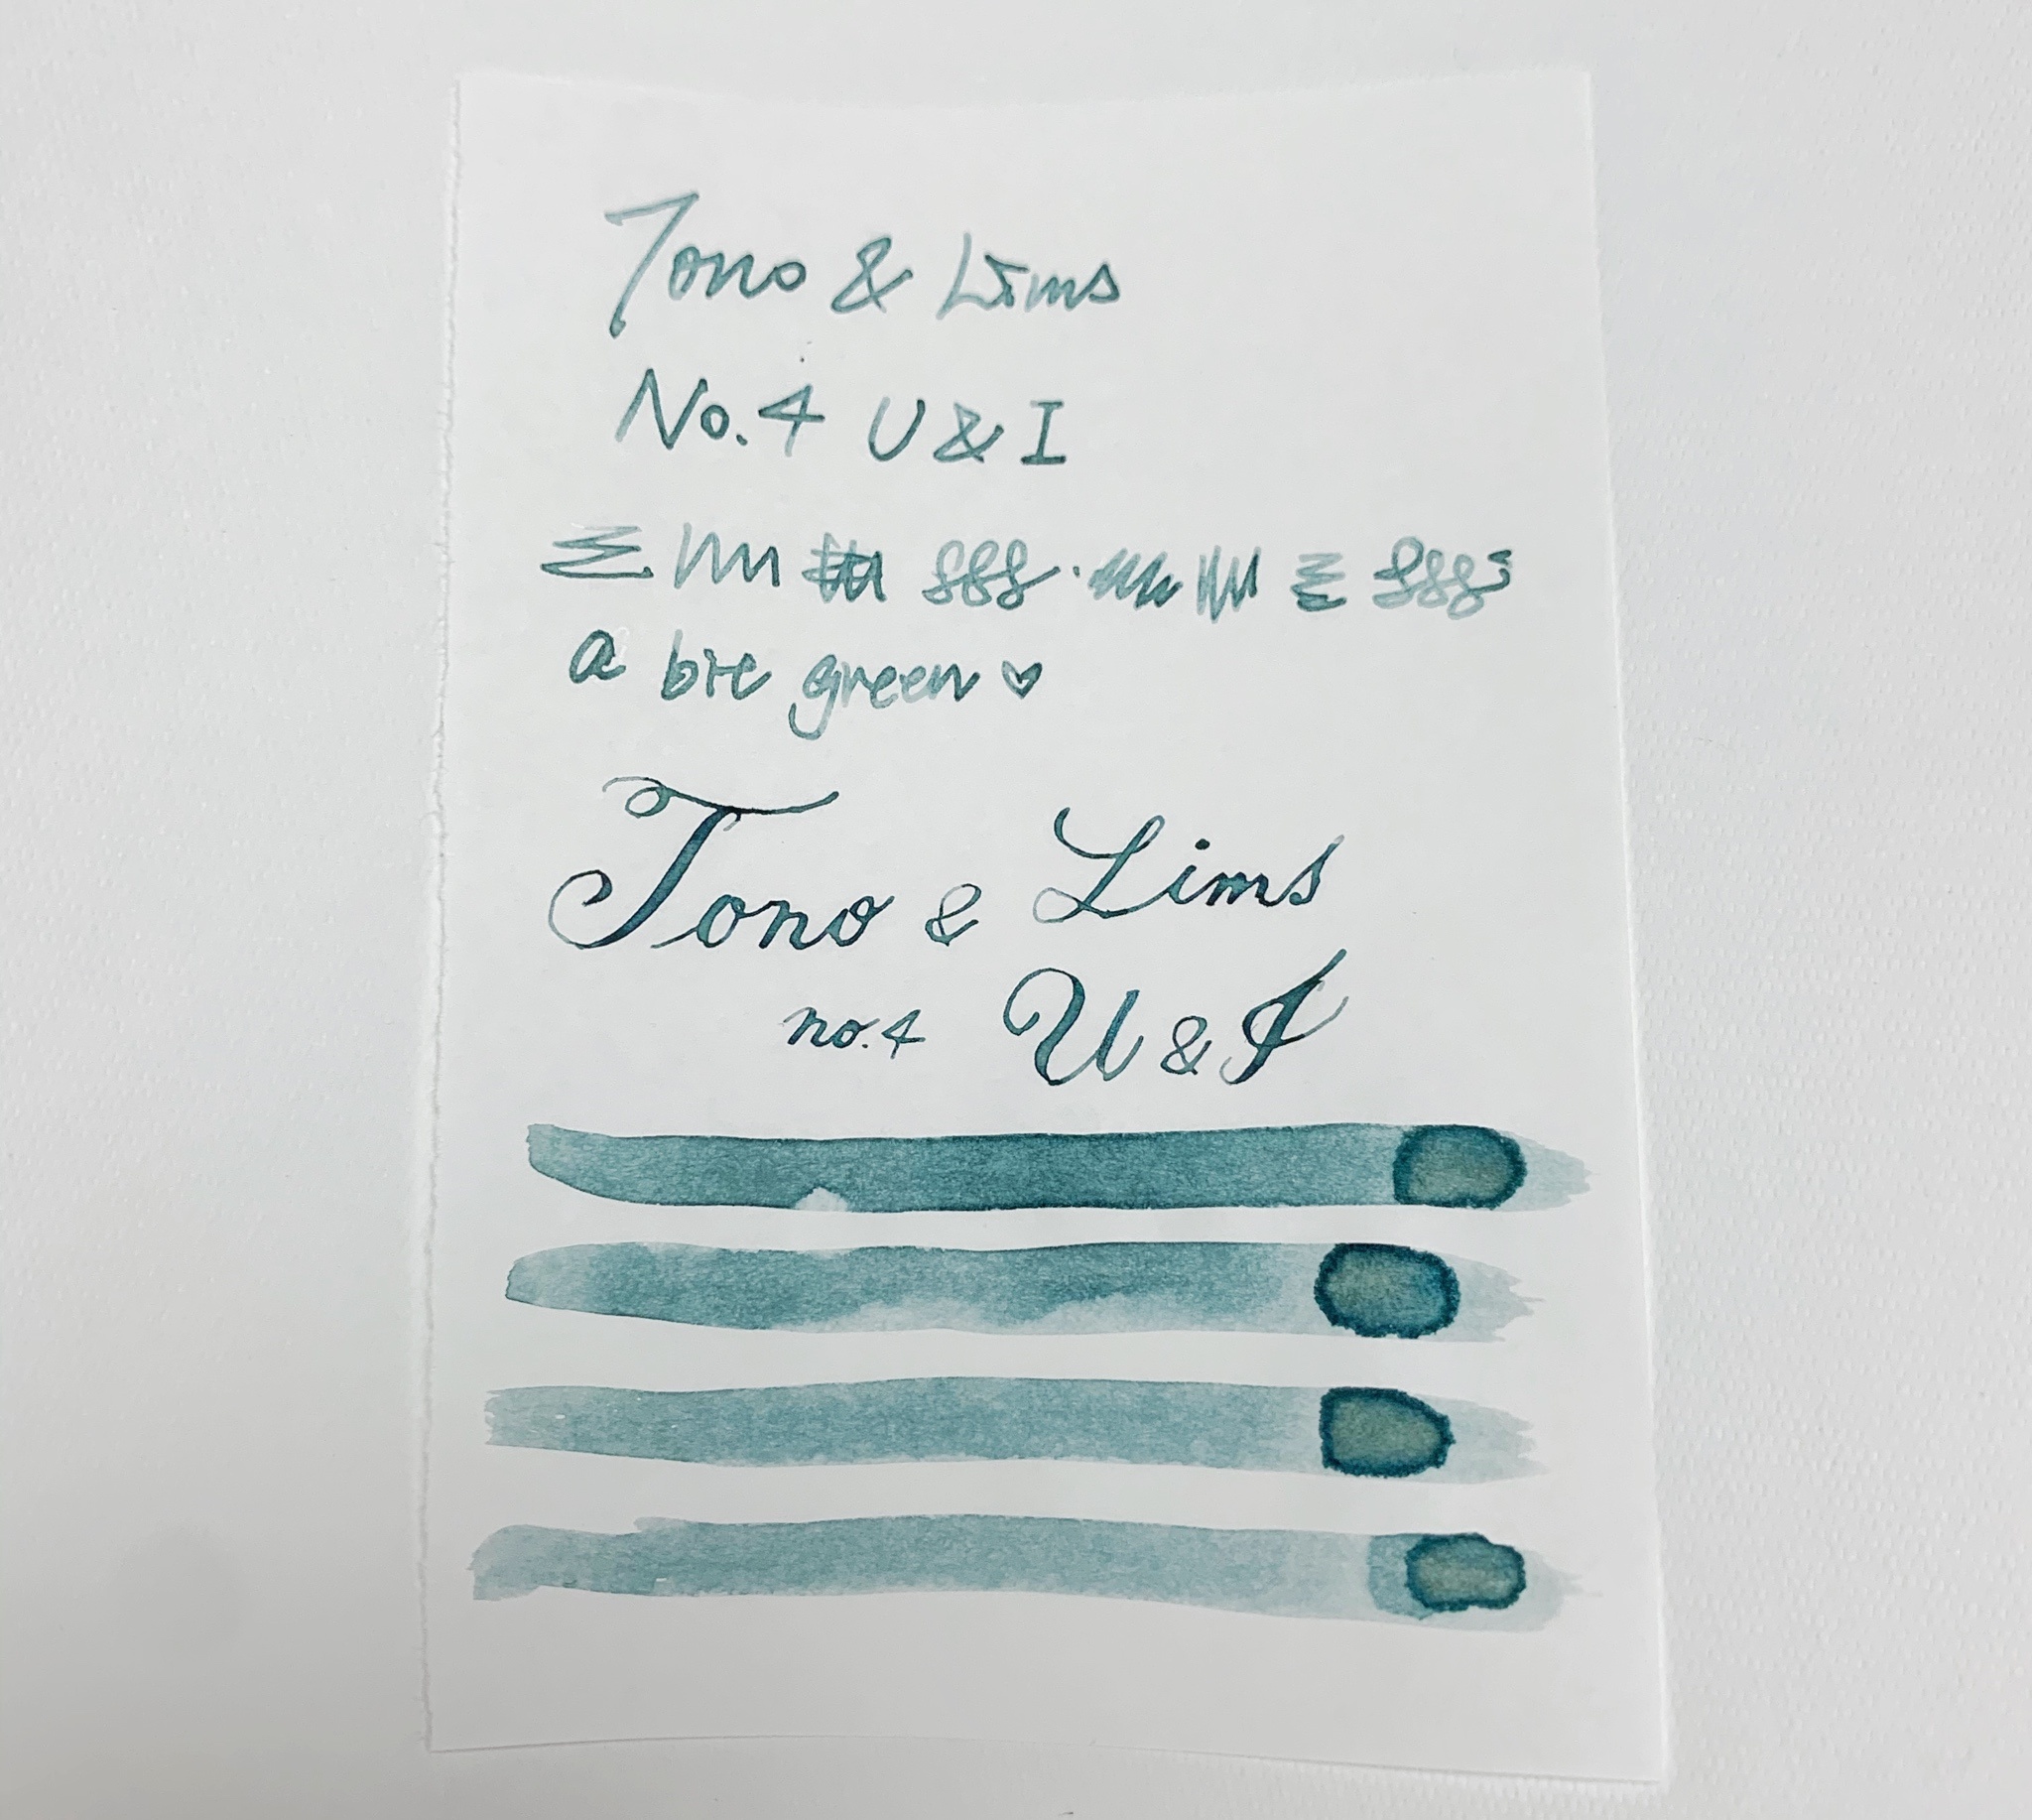 Tono & Lims
No.4 U & I
a bit green ♡
Tono & Lims
no.4 U & I